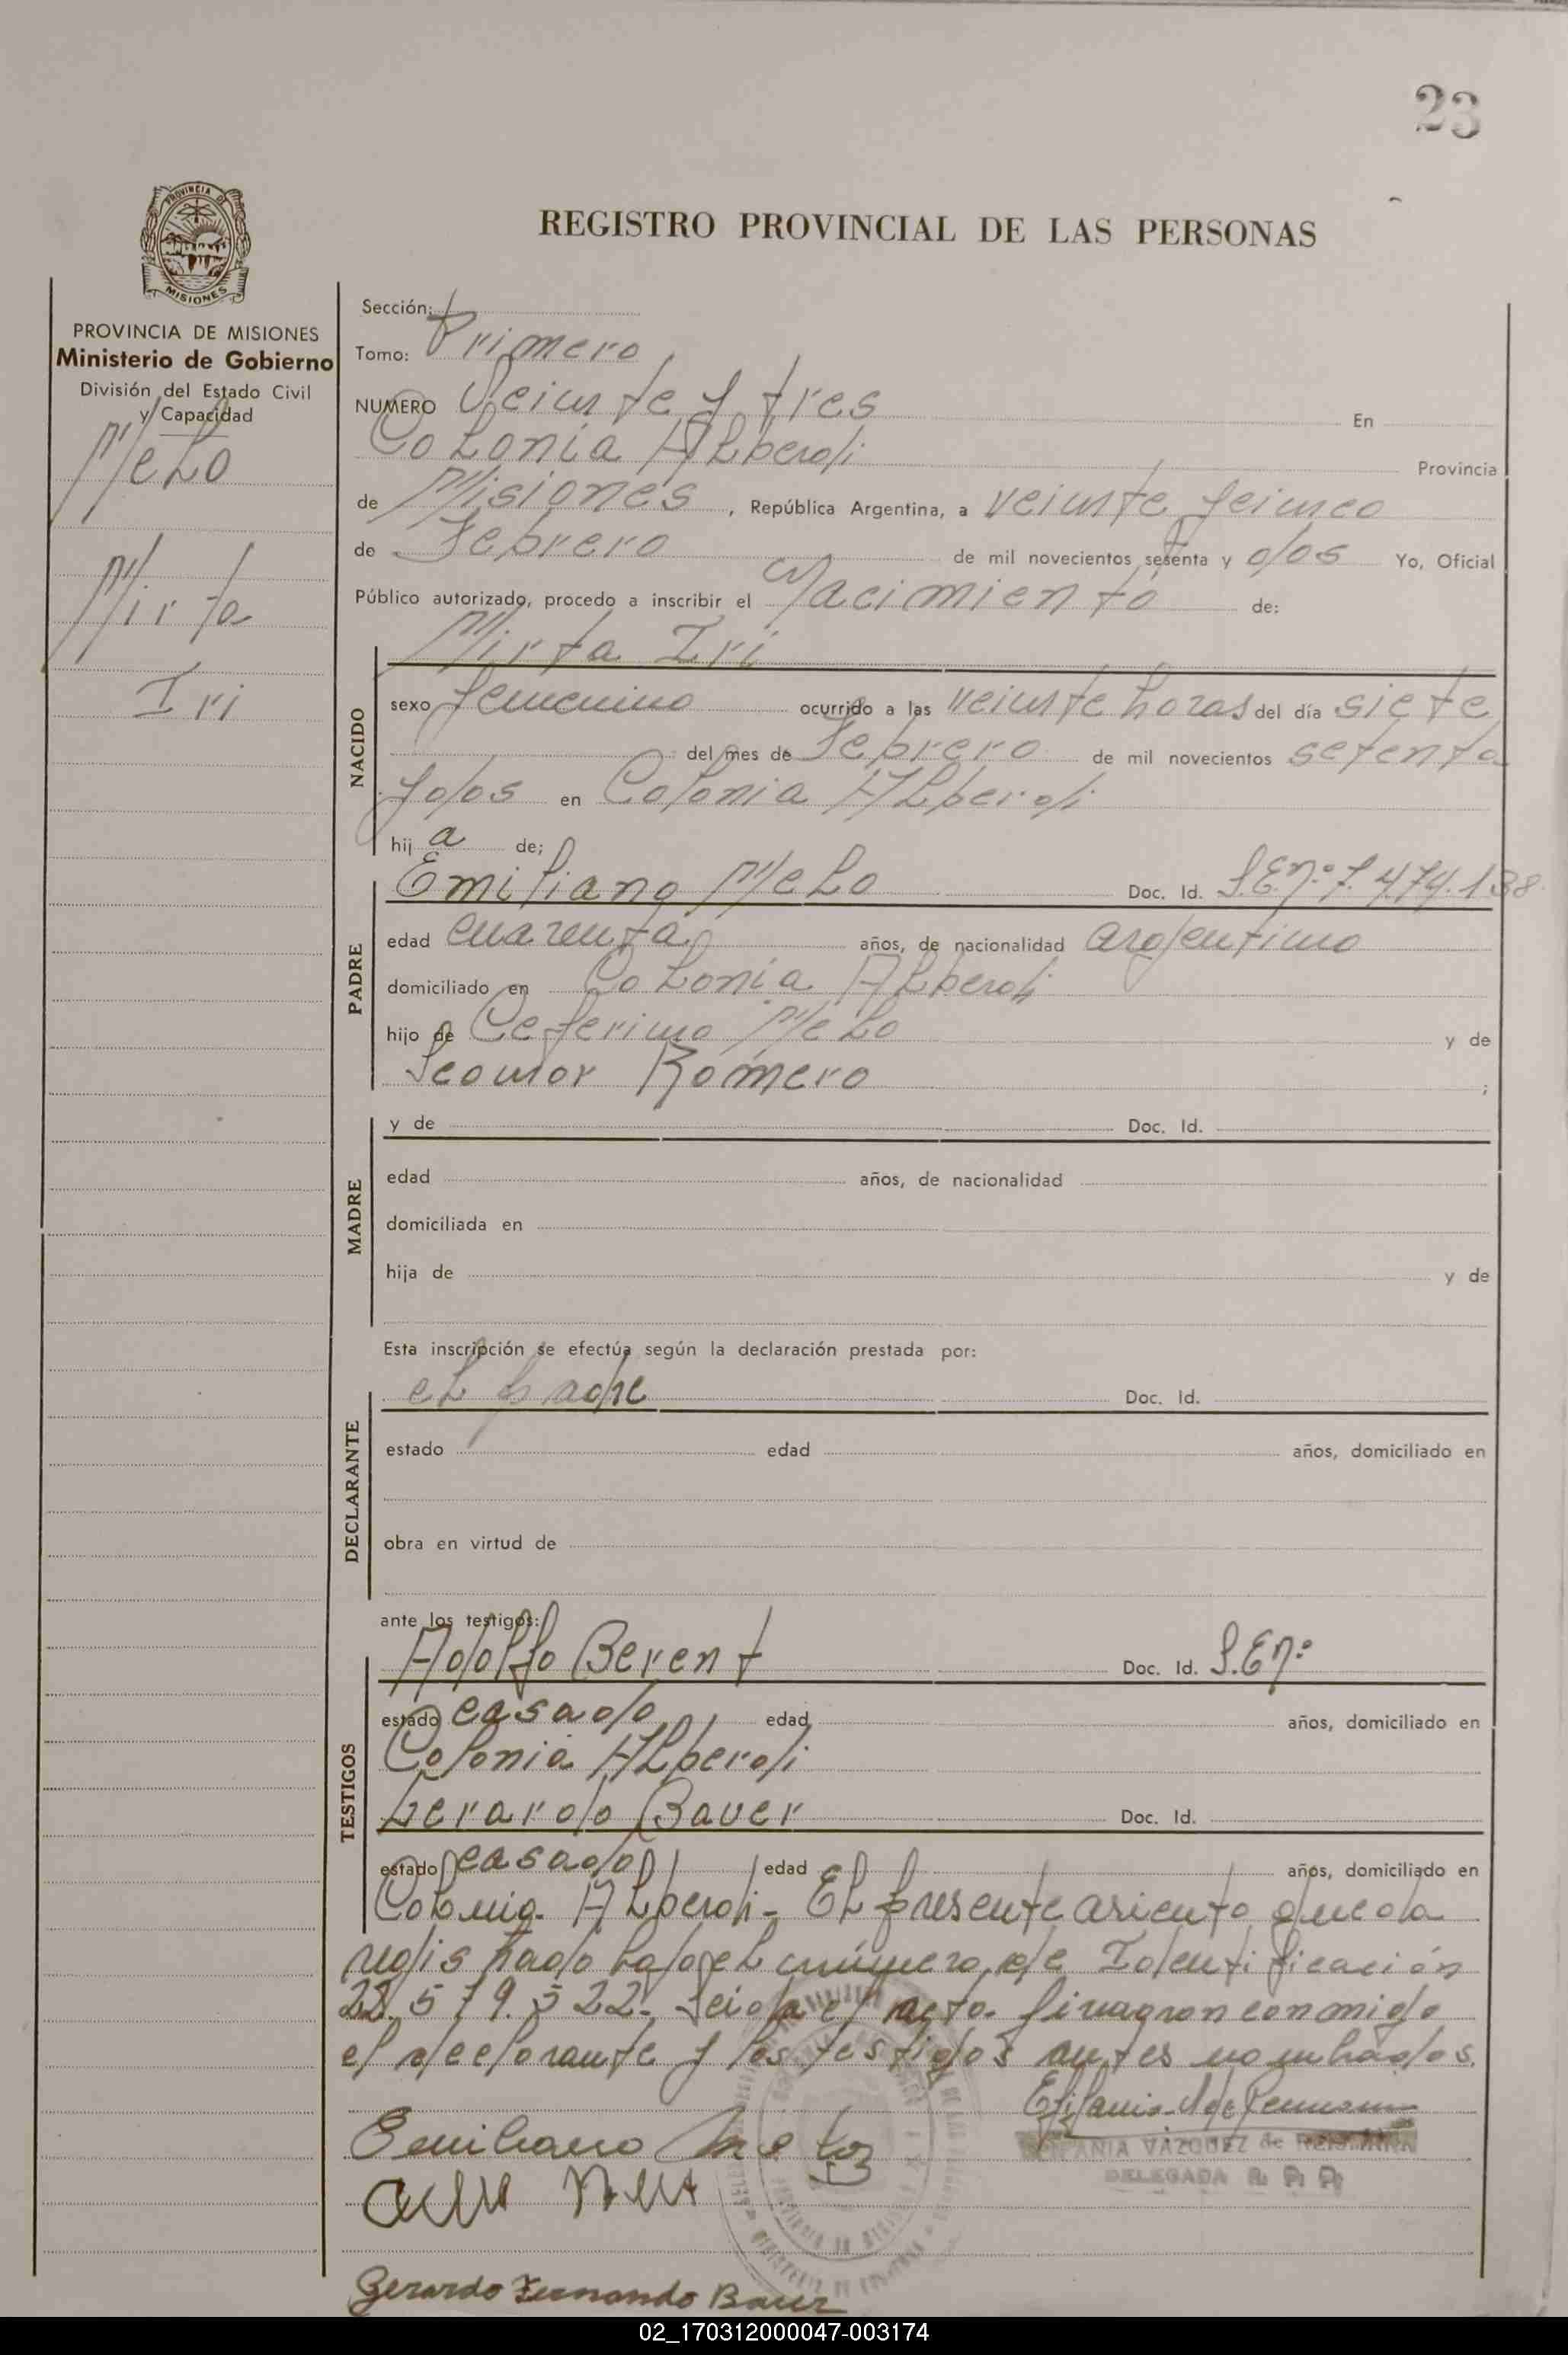 23
PROVINCIA DE
MISIONES
REGISTRO PROVINCIAL DE LAS PERSONAS
PROVINCIA DE MISIONES
Ministerio de Gobierno
División del Estado Civil
y Capacidad
Melo
Mirta
Iri
Sección:
Tomo: Primero
NUMERO Veinte y tres En
Colonia ALberdi Provincia
de Misiones, República Argentina, a veinte y cinco
de Febrero de mil novecientos setenta y dos Yo, Oficial
Público autorizado, procedo a inscribir el Nacimiento de:
Mirta Iri
NACIDO
sexo femenino ocurrido a las veinte horas del día siete
del mes de Febrero de mil novecientos setenta
y dos en Colonia ALberdi
hij a de;
PADRE
Emiliano MeLo Doc. Id. L.E.nº 7.474.138
edad cuarenta años, de nacionalidad argentino
domiciliado en CoLonia ALberdi
hijo de Ceferino MeLo y de
Leonor Romero ;
MADRE
y de Doc. Id.
edad años, de nacionalidad
domiciliada en
hija de y de
Esta inscripción se efectúa según la declaración prestada por:
DECLARANTE
eL padre Doc. Id.
estado edad años, domiciliado en
obra en virtud de
ante los testigos:
TESTIGOS
AdoLfo Berent Doc. Id. L.E nº
estado casado edad años, domiciliado en
Colonia ALberdi
Gerardo Bauer Doc. Id.
estado casado edad años, domiciliado en
Colonia ALberdi- EL presente asiento queda
registrado bajo eL número de Identificación
22.579.522- Leida el acta. firmaron conmigo
el declarante y los testigos antes nombrados.
Emiliano Melo
EPIFANIA VAZQUEZ de
DELEGADA
Gerardo Fernando Bauer
02_170312000047-003174